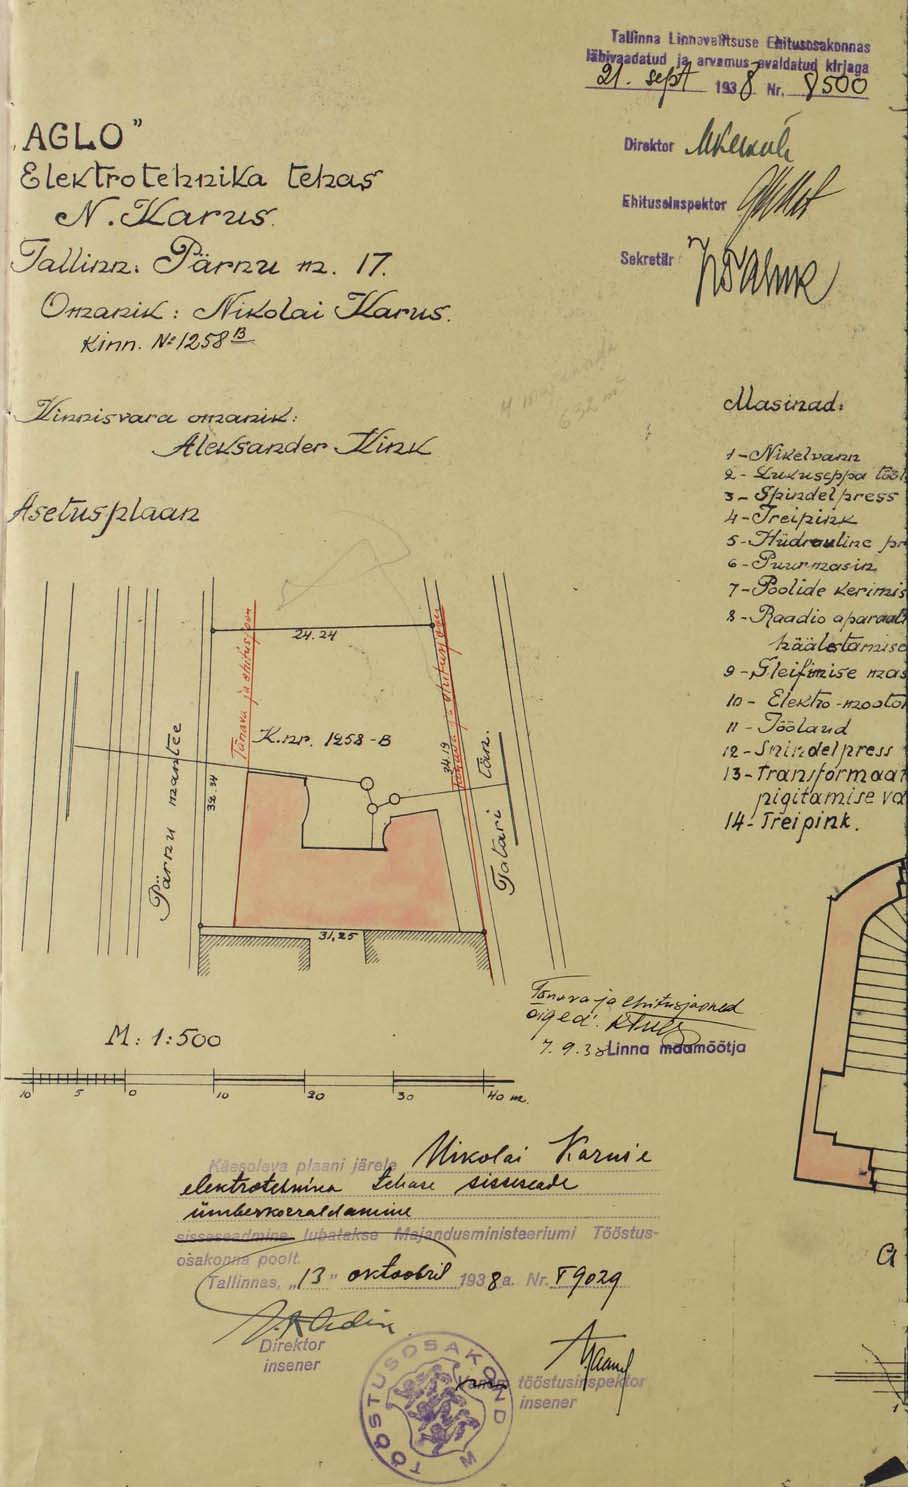 Tallinna Linnavalitsuse Ehitusosakonnas
läbivaadatud ja arvamus avaldatud kirjaga
21. sept 1938 Nr. 8500
Direktor
Ehituseinspektor
Sekretär
„AGLO”
Elektrotehnika tehas
N. Karus.
Tallinn: Pärnu m. 17.
Omanik: Nikolai Karus.
Kinn. № 1258 B
4 krt
632 m²
Kinnisvara omanik:
Aleksander Kink
Asetusplaan
Masinad:
1 - Nikelvann
2 - Lukuseppa tööl
3 - Spindelpress
4 - Treipink
5 - Hüdrauline pr
6 - Puurmasin
7 - Poolide kerimis
8 - Raadio aparaat
häälestamise
9 - Sleifimise mas
10 - Elektro-mooto
11 - Töölaud
12 - Spindelpress
13 - Transformaat
pigitamise va
14 - Treipink.
24.24
Tänava ja ehitusjoon
Tänava ja ehitusjoon
K.nr. 1258-B
Pärnu mantee
32.34
34.19
Tatari tän.
31,25
Tänava ja ehitusjooned
õiged:
7.9.38 Linna maamõõtja
M: 1:500
10 5 0 10 20 30 40 m.
Käesoleva plaani järele Nikolai Karus'e
elektrotehnika tehase sisseseade
ümberkorraldamine
sisseseadmine lubatakse Majandusministeeriumi Tööstus-
osakonna poolt.
Tallinnas, „13” oktoobril 1938 a. Nr. T9029
Direktor
insener
Vanem tööstusinspektor
insener
TÖÖSTUSOSAKOND